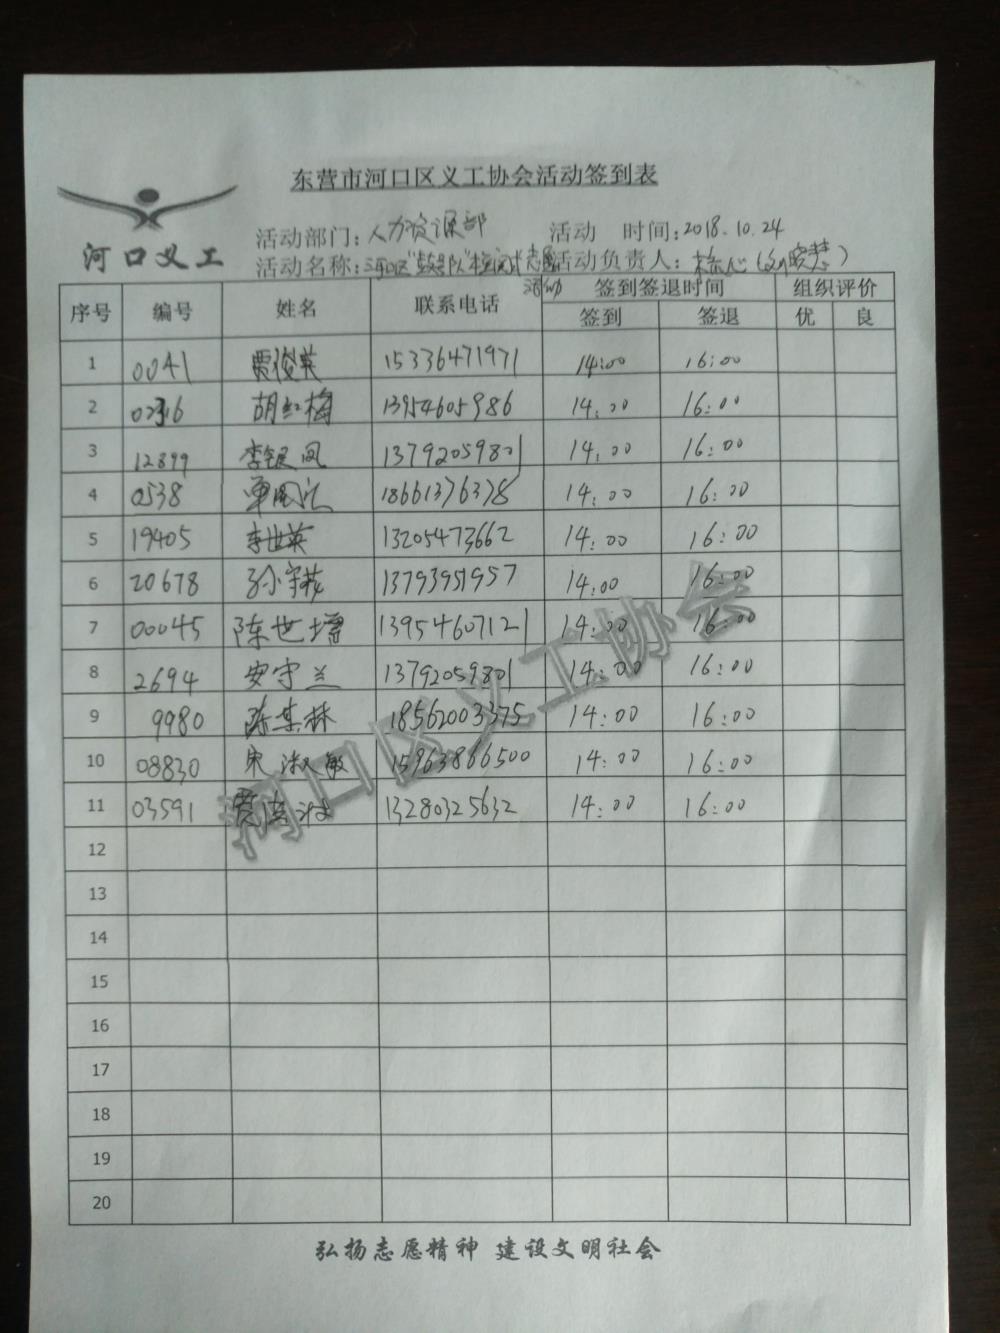 东营市河口区义工协会活动签到表
河口义工
活动部门：人力资源部 活动 时间：2018.10.24
活动名称：河口区"鼓号队" 志愿 活动负责人：
活动
序号 编号 姓名 联系电话 签到签退时间 组织评价
签到 签退 优 良
1 0041 贾俊英 15336471971 14:00 16:00
2 胡红梅 13954605986 14:00 16:00
3 12899 李银凤 13792059801 14:00 16:00
4 0538 18661376378 14:00 16:00
5 19405 李世英 13205473662 14:00 16:00
6 20678 13793951957 14:00 16:00
7 00045 陈世 13954607121 14:00 16:00
8 2694 安守兰 13792059801 14:00 16:00
9 9980 陈某林 18562003375 14:00 16:00
10 08830 宋淑敏 15963866500 14:00 16:00
11 03591 贾 13280325632 14:00 16:00
12
13
14
15
16
17
18
19
20
河口区义工协会
弘扬志愿精神 建设文明社会